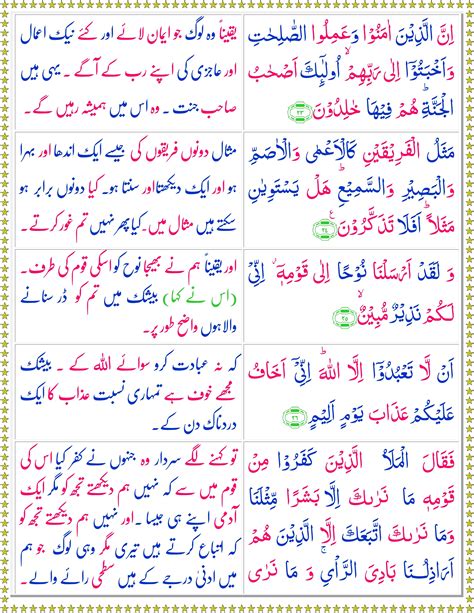 اِنَّ الَّذِيْنَ اٰمَنُوْا وَعَمِلُوا الصّٰلِحٰتِ
وَاَخْبَتُوْۤا اِلٰى رَبِّهِمْ ۙ اُولٰٓئِكَ اَصْحٰبُ
الْجَنَّةِ ۚ هُمْ فِيْهَا خٰلِدُوْنَ ۝۲۳
یقیناً وہ لوگ جو ایمان لائے اور کئے نیک اعمال
اور عاجزی کی اپنے رب کے آگے ۔ یہی ہیں
صاحب جنت ۔ وہ اس میں ہمیشہ رہیں گے۔
مَثَلُ الْفَرِيْقَيْنِ كَالْاَعْمٰى وَالْاَصَمِّ
وَالْبَصِيْرِ وَالسَّمِيْعِ ؕ هَلْ يَسْتَوِيٰنِ
مَثَلًا ؕ اَفَلَا تَذَكَّرُوْنَ ۝۲۴
مثال دونوں فریقوں کی جیسے ایک اندھا اور بہرا
ہو اور ایک دیکھتا اور سنتا ہو۔ کیا دونوں برابر ہو
سکتے ہیں مثال میں۔ کیا پھر نہیں تم غور کرتے۔
وَ لَقَدْ اَرْسَلْنَا نُوْحًا اِلٰى قَوْمِهٖۤ ؗ اِنِّىْ
لَكُمْ نَذِيْرٌ مُّبِيْنٌ ۝۲۵
اور یقیناً ہم نے بھیجا نوح کو اسکی قوم کی طرف۔
(اس نے کہا) بیشک میں تم کو ڈر سنانے
والا ہوں واضح طور پر۔
اَنْ لَّا تَعْبُدُوْۤا اِلَّا اللّٰهَ ؕ اِنِّىْۤ اَخَافُ
عَلَيْكُمْ عَذَابَ يَوْمٍ اَلِيْمٍ ۝۲۶
کہ نہ عبادت کرو سوائے اللہ کے ۔ بیشک
مجھے خوف ہے تمہاری نسبت عذاب کا ایک
دردناک دن کے۔
فَقَالَ الْمَلَاُ الَّذِيْنَ كَفَرُوْا مِنْ
قَوْمِهٖ مَا نَرٰٮكَ اِلَّا بَشَرًا مِّثْلَنَا
وَمَا نَرٰٮكَ اتَّبَعَكَ اِلَّا الَّذِيْنَ هُمْ
اَرَاذِلُنَا بَادِىَ الرَّاْىِ ۚ وَ مَا نَرٰى
تو کہنے لگے سردار وہ جنہوں نے کفر کیا اس کی
قوم میں سے کہ نہیں ہم دیکھتے تجھ کو مگر ایک
آدمی اپنے ہی جیسا ۔ اور نہیں ہم دیکھتے تجھ کو
کہ اتباع کرتے ہیں تیری مگر وہی لوگ جو ہم
میں ادنیٰ درجے کے ہیں سطحی رائے والے۔